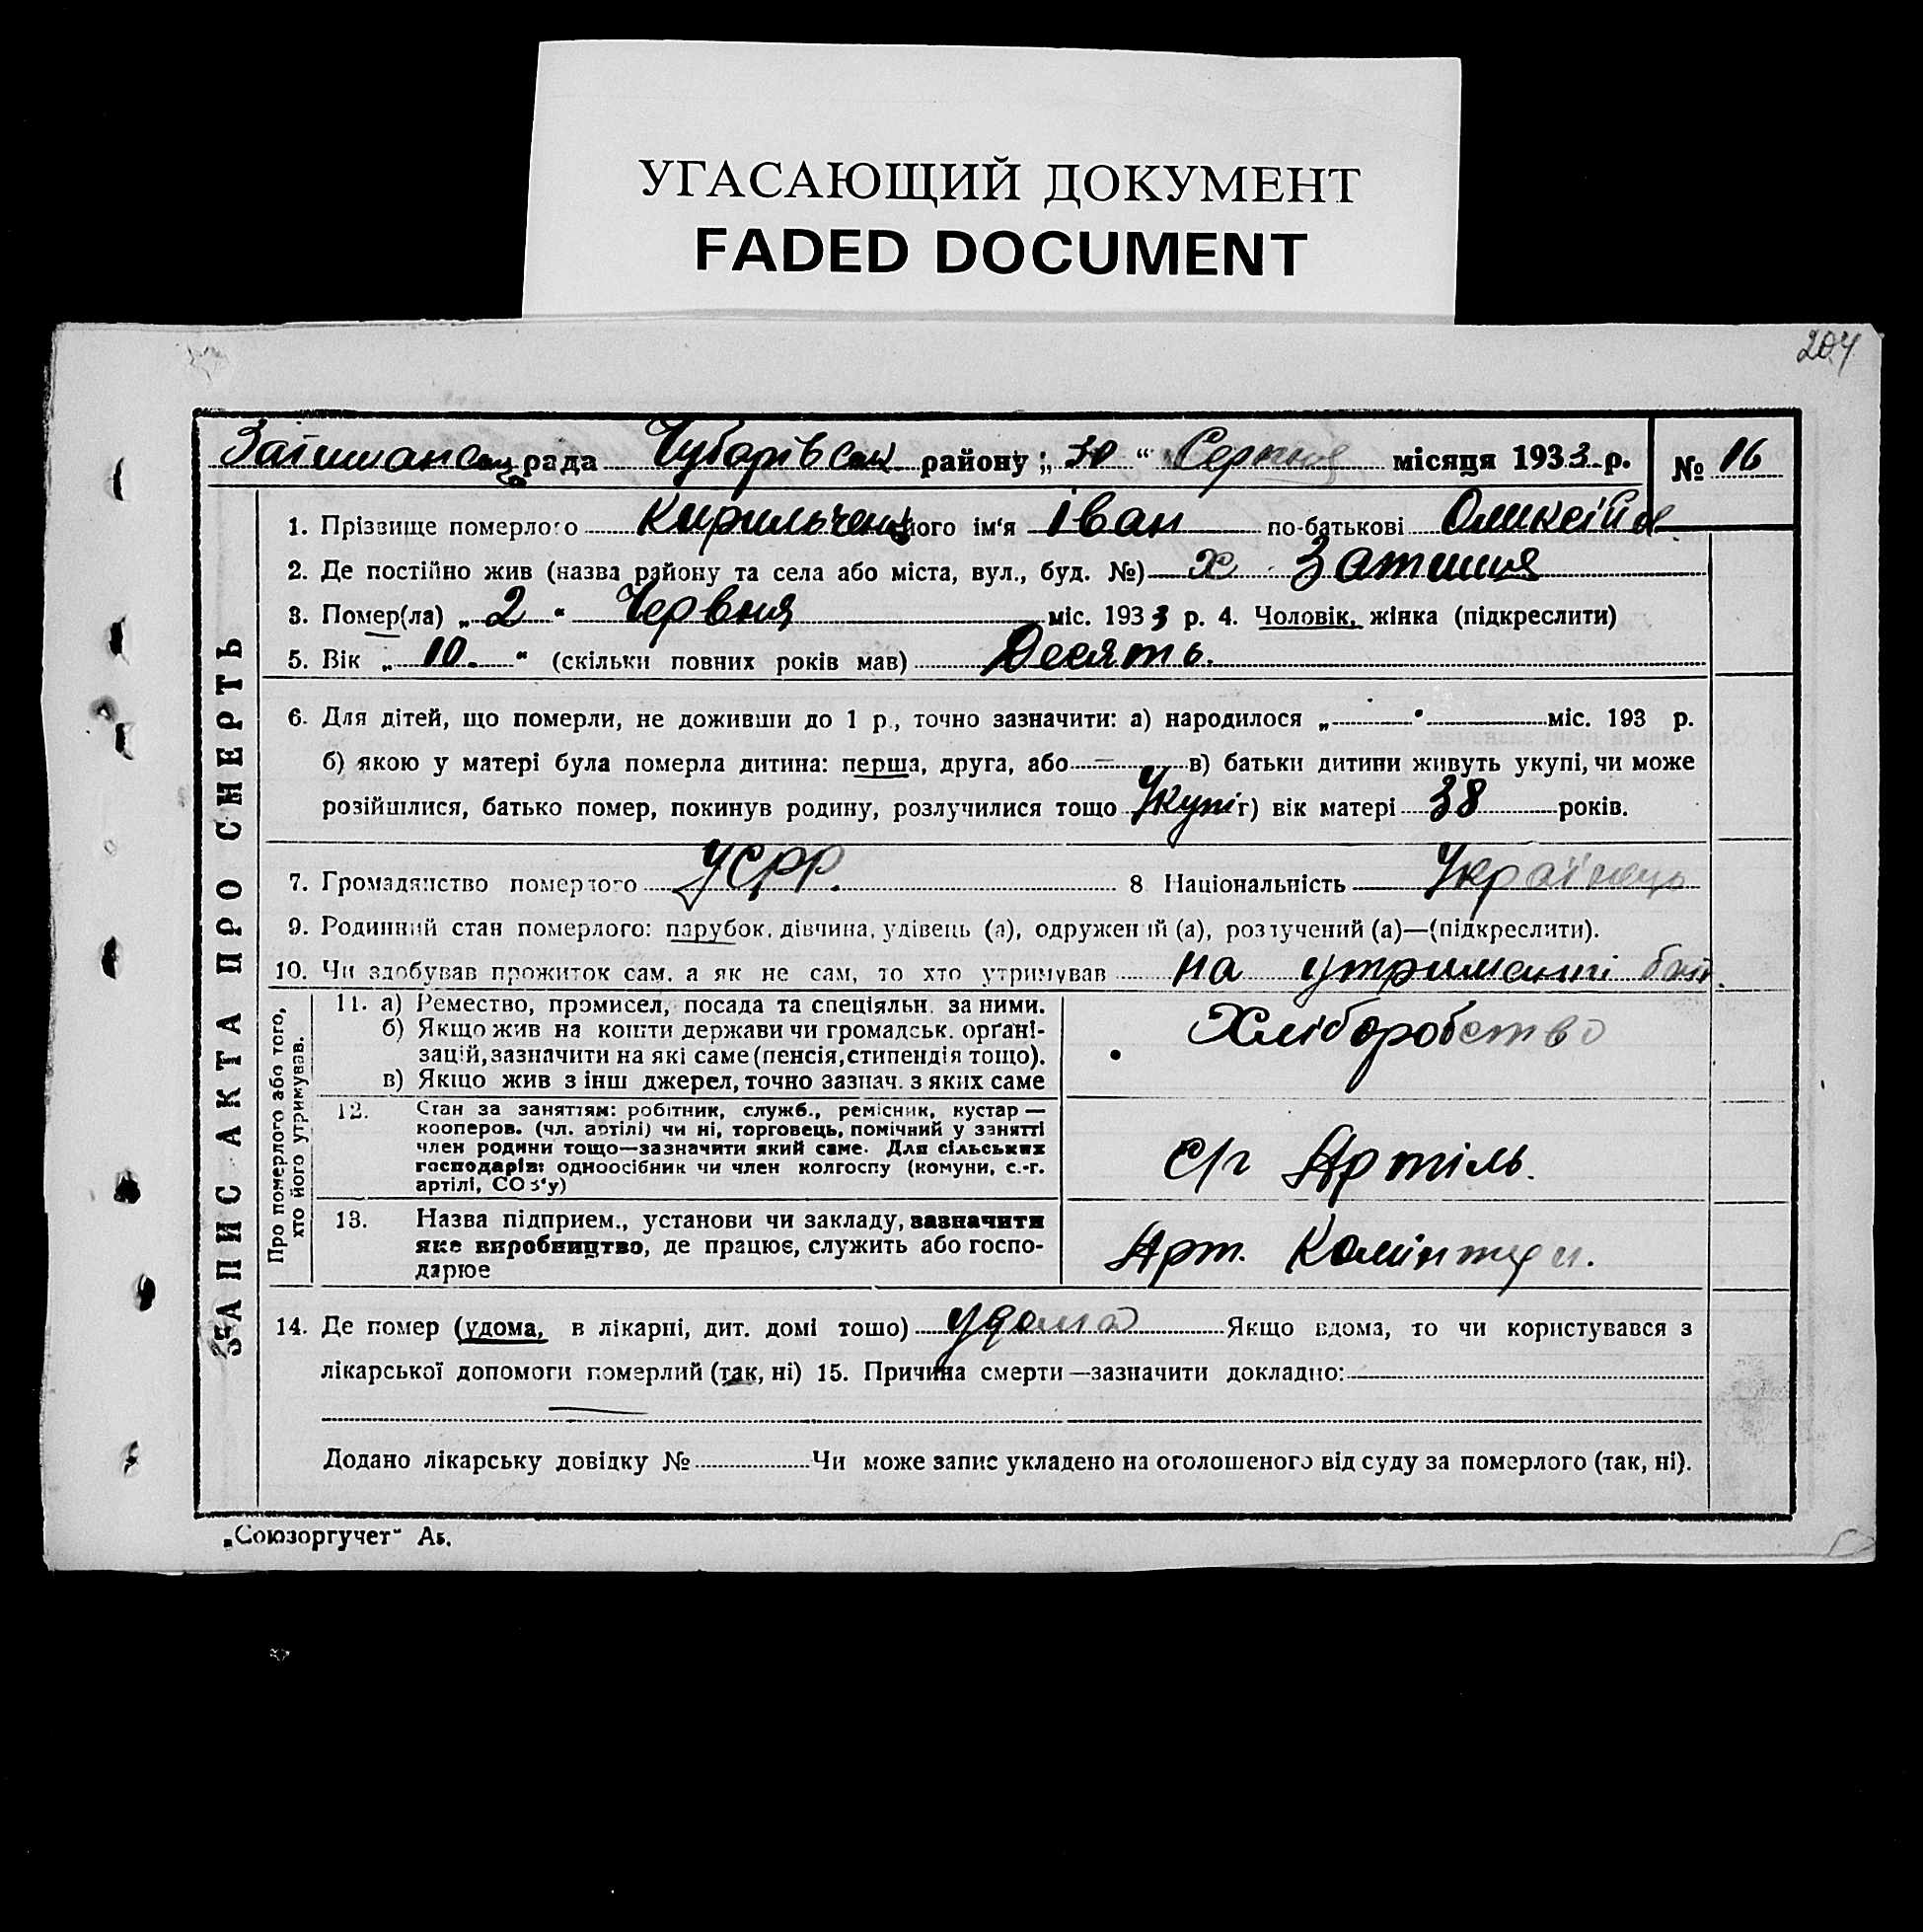 УГАСАЮЩИЙ ДОКУМЕНТ
FADED DOCUMENT
204
рада Чубарівськ району „ 30 “ Серпня місяця 1933 р. № 16
ЗАПИС АКТА ПРО СМЕРТЬ
1. Прізвище померлого Кирильченко його ім'я Іван по-батькові
2. Де постійно жив (назва району та села або міста, вул., буд. №) Х Затишшя
3. Помер(ла) „ 2 “ Червня міс. 1933 р. 4. Чоловік, жінка (підкреслити)
5. Вік „ 10. “ (скільки повних років мав) Десять.
6. Для дітей, що померли, не доживши до 1 р., точно зазначити: а) народилося „ “ міс. 193 р.
б) якою у матері була померла дитина: перша, друга, або — в) батьки дитини живуть укупі, чи може
розійшлися, батько помер, покинув родину, розлучилися тощо Укупі г) вік матері 38 років.
7. Громадянство померлого УСРР. 8 Національність Українець
9. Родинний стан померлого: парубок, дівчина, удівець (а), одружений (а), розлучений (а)—(підкреслити).
10. Чи здобував прожиток сам, а як не сам, то хто утримував на утриманні бат.
Про померлого або того,
хто його утримував.
11. а) Ремество, промисел, посада та спеціяльн. за ними.
б) Якщо жив на кошти держави чи громадськ. орґані-
зацій, зазначити на які саме (пенсія, стипендія тощо).
в) Якщо жив з інш джерел, точно зазнач. з яких саме
Хліборобство
12. Стан за заняттям: робітник, служб., ремісник, кустар —
кооперов. (чл. артілі) чи ні, торговець, помічний у занятті
член родини тощо—зазначити який саме. Для сільських
господарів: одноосібник чи член колгоспу (комуни, с.-г.
артілі, СОЗ'у)
с/г Артіль.
13. Назва підприєм., установи чи закладу, зазначити
яке виробництво, де працює, служить або госпо-
дарює
Арт. Комінтерн.
14. Де помер (удома, в лікарні, дит. домі тошо) удома Якщо вдома, то чи користувався з
лікарської допомоги померлий (так, ні) 15. Причина смерти—зазначити докладно:
Додано лікарську довідку № Чи може запис укладено на оголошеного від суду за померлого (так, ні).
„Союзоргучет“ Аз.